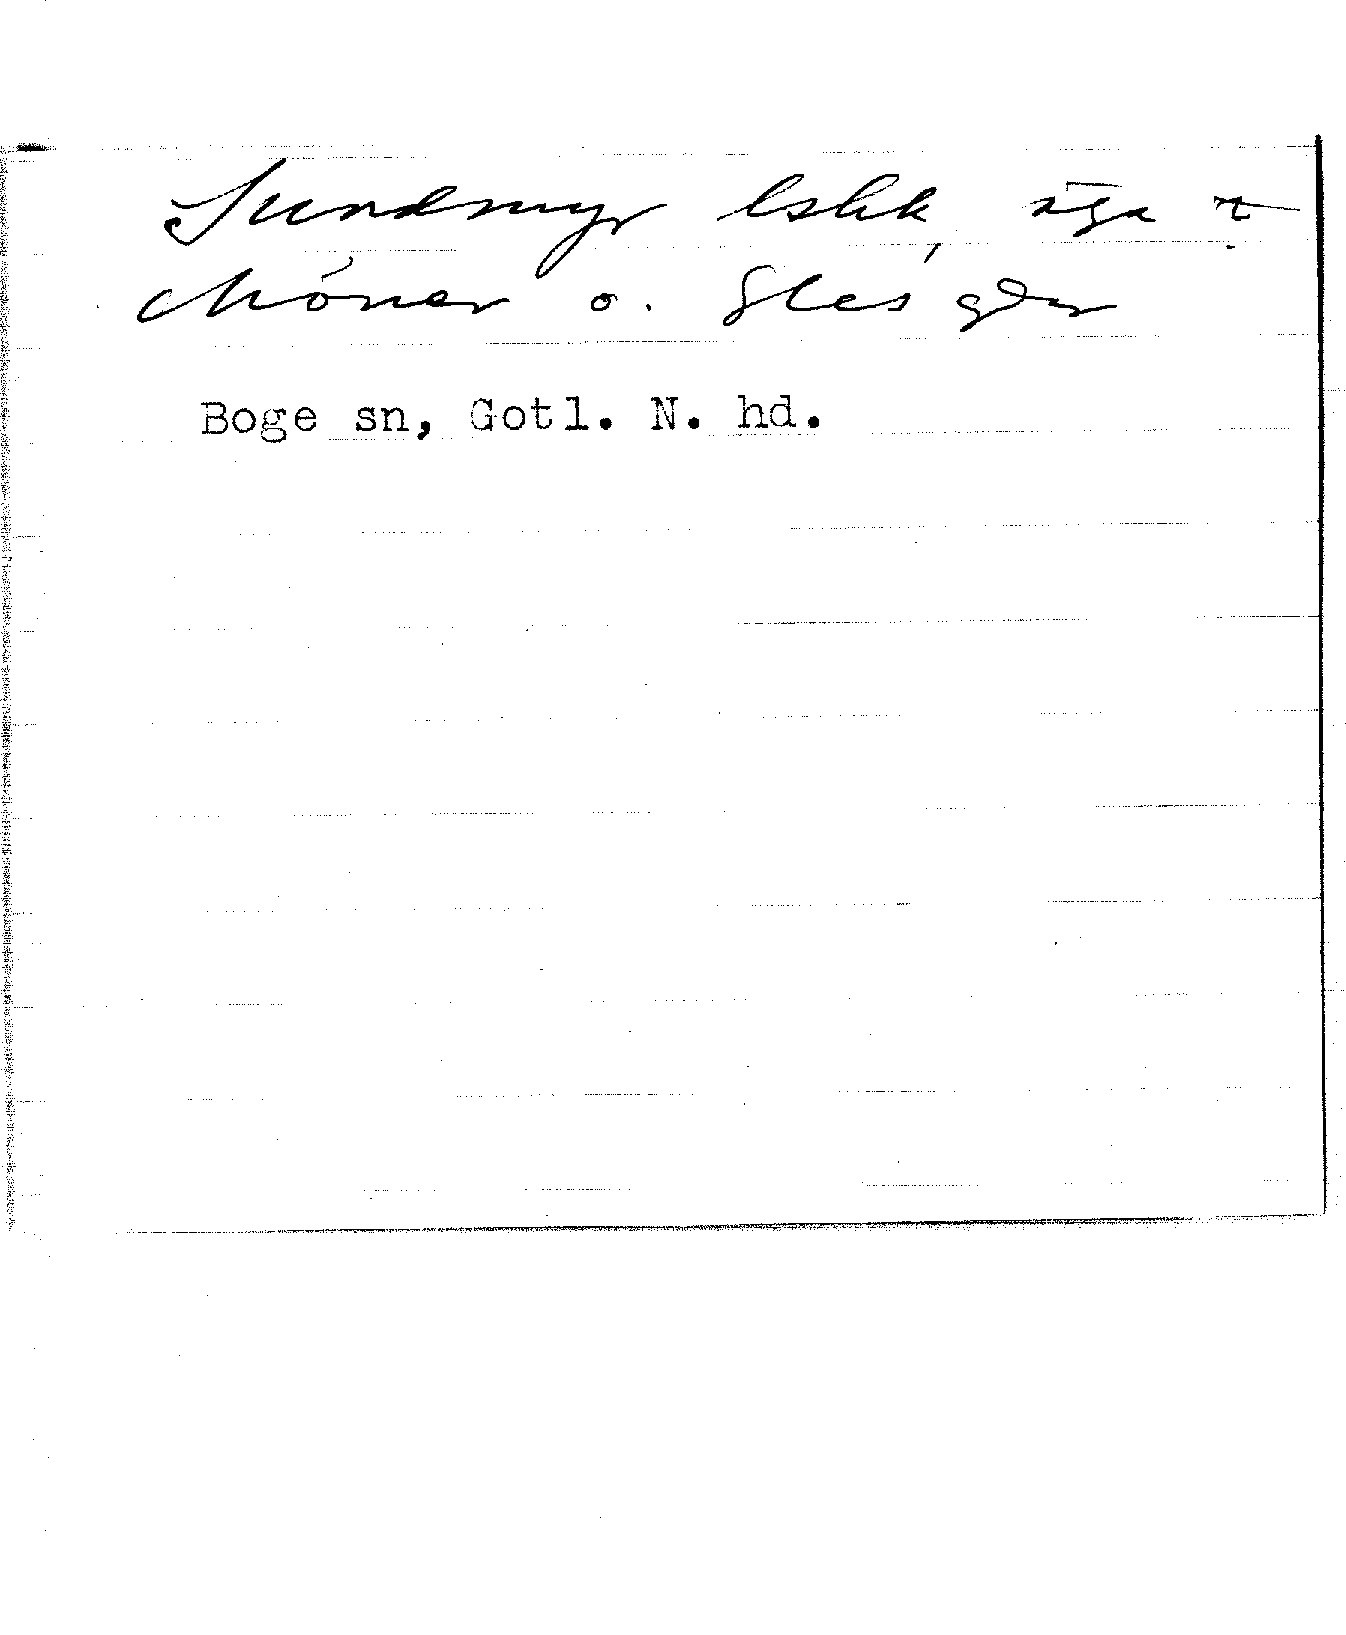 Sundmyr lslik, äga t.
Móner o. Glés gdr
Boge sn, Gotl. N. hd.